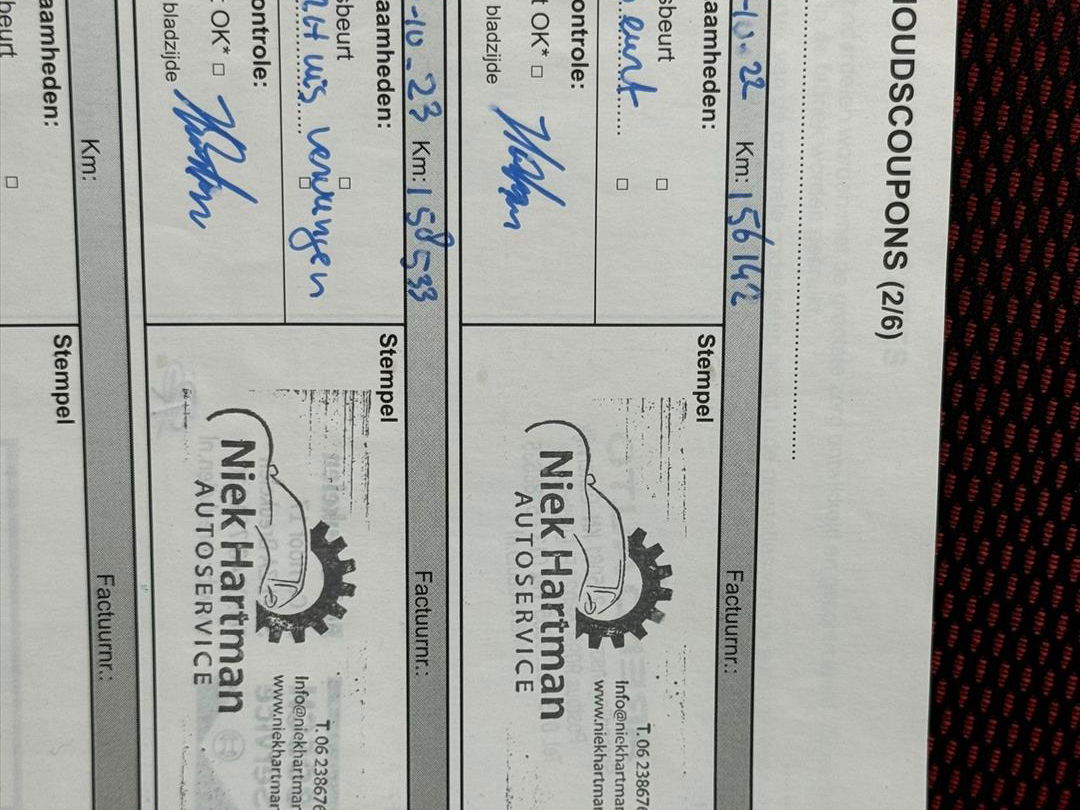 OUDSCOUPONS (2/6)
-10-22 Km: 156142 Factuurnr.:
aamheden:
sbeurt
eurt
ontrole:
t OK*
bladzijde
Stempel
Niek Hartman
AUTOSERVICE
T. 06 23867
Info@niekhartma
www.niekhartma
-10-23 Km: 158533 Factuurnr.:
aamheden:
sbeurt
vervangen
ontrole:
t OK*
bladzijde
Stempel
Niek Hartman
AUTOSERVICE
T. 06 23867
Info@niekhartma
www.niekhartma
Km: Factuurnr.:
aamheden:
beurt
Stempel